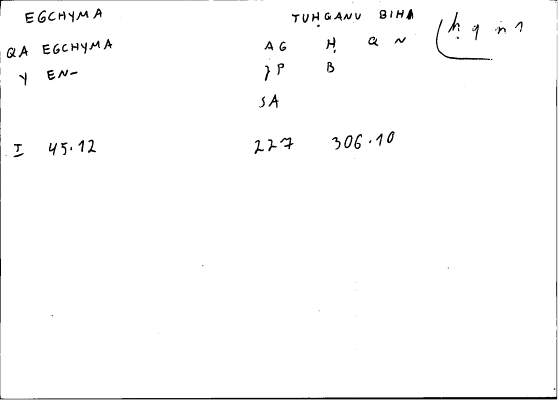 EGCHYMA TUḤGANU BIHA
ḥ q n 1
QA EGCHYMA AG Ḥ Q N
Y EN- P B
SA
I 45.12 227 306.10